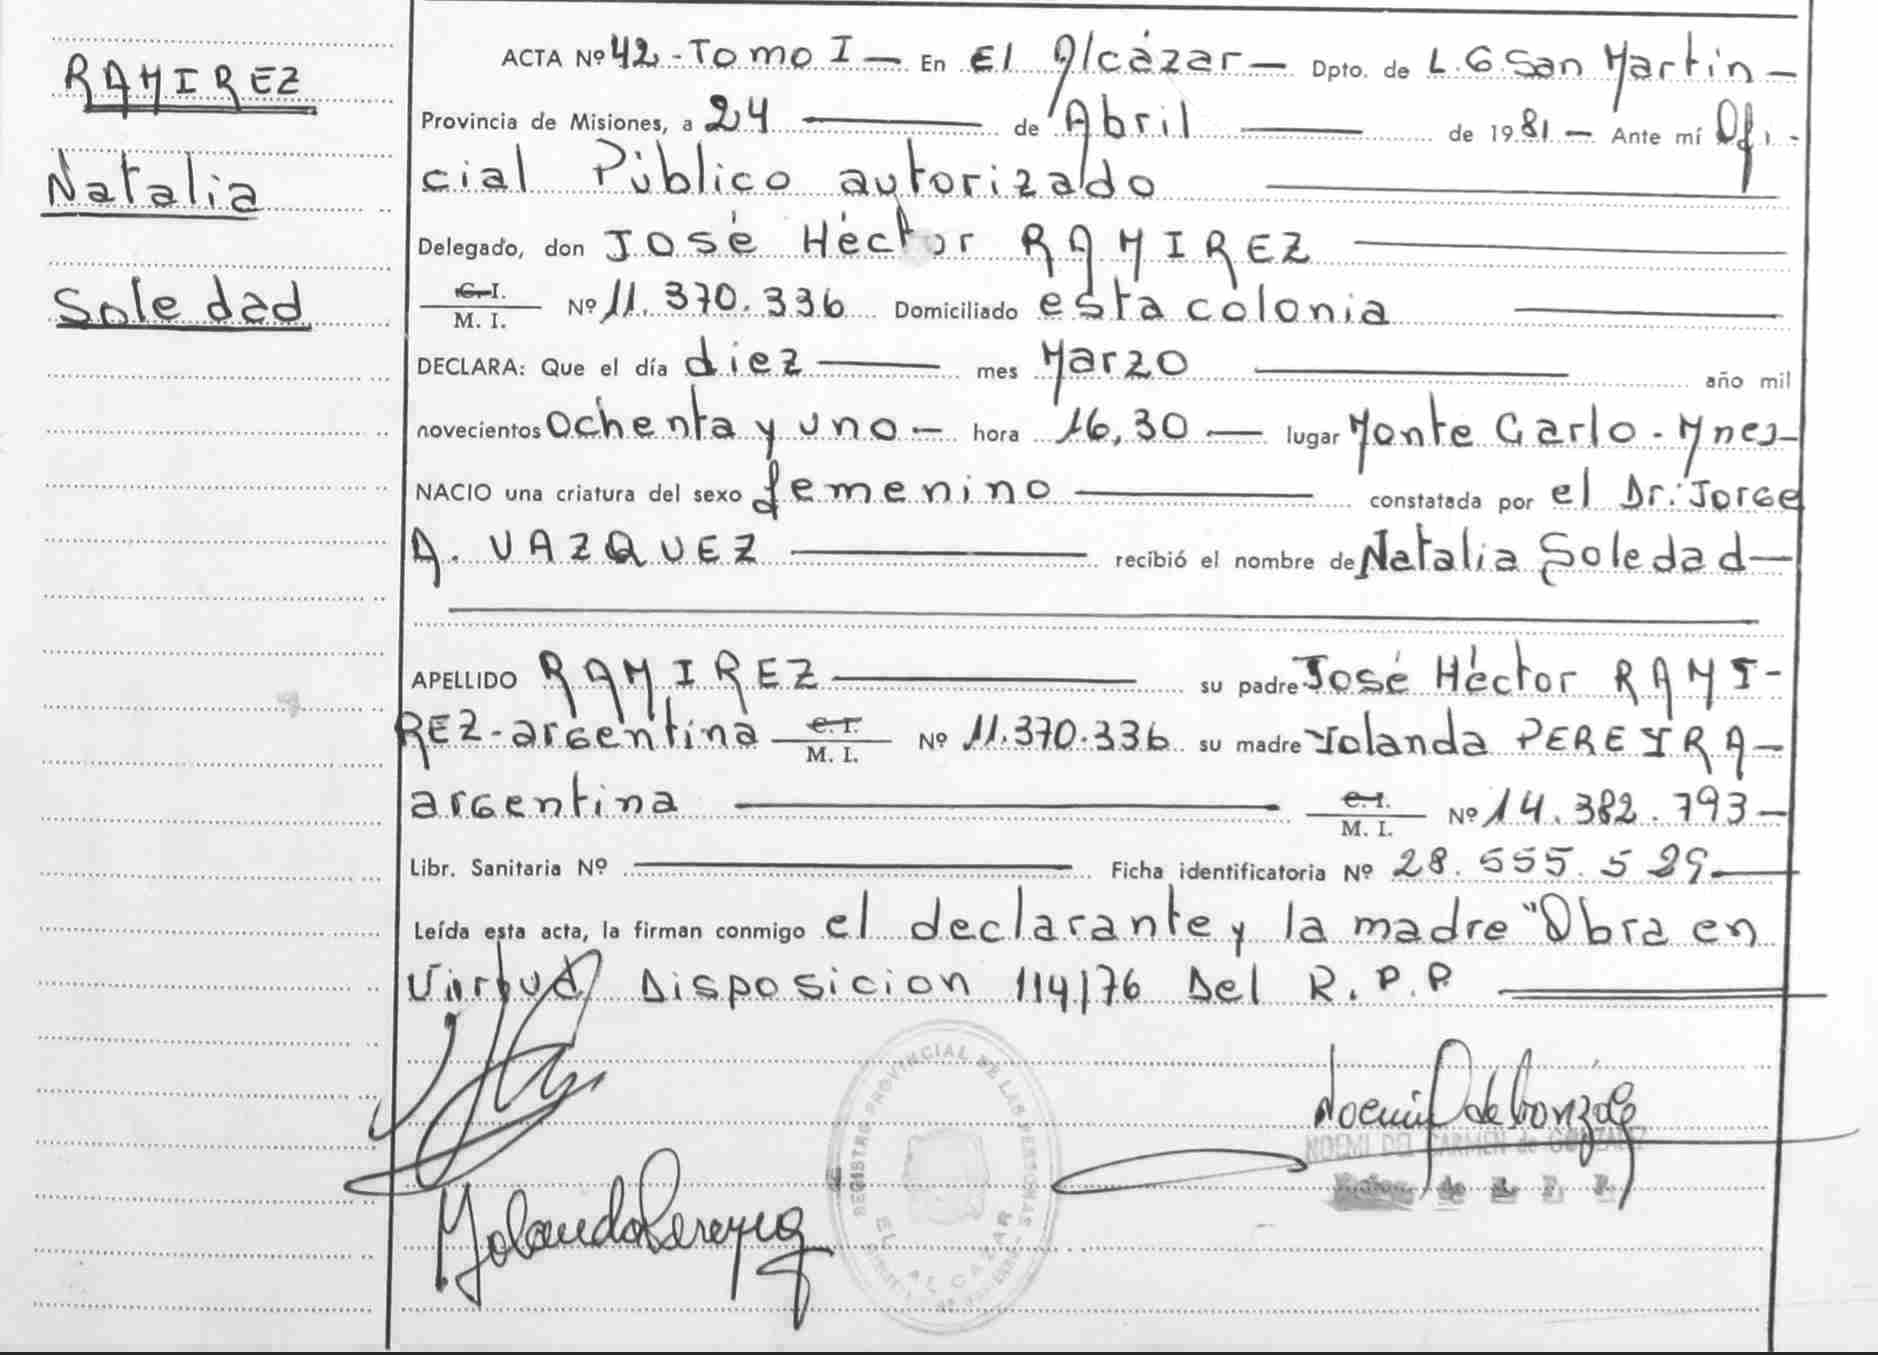 RAMIREZ
Natalia
Soledad
ACTA Nº 42 - Tomo I — En El Alcázar — Dpto. de L. G. San Martin —
Provincia de Misiones, a 24 — de Abril — de 1981 — Ante mí Ofi-
cial Público autorizado —
Delegado, don José Héctor RAMIREZ —
C. I.
M. I. Nº 11.370.336 Domiciliado esta colonia —
DECLARA: Que el día diez — mes Marzo — año mil
novecientos ochenta y uno — hora 16,30 — lugar Monte Carlo - Mnes —
NACIO una criatura del sexo femenino — constatada por el Dr. Jorge
A. VAZQUEZ — recibió el nombre de Natalia Soledad —
APELLIDO RAMIREZ — su padre José Héctor RAMI-
REZ - argentina C. I.
M. I. Nº 11.370.336 su madre Yolanda PEREYRA —
argentina — C. I.
M. I. Nº 14.382.793 —
Libr. Sanitaria Nº — Ficha identificatoria Nº 28.555.529 —
Leída esta acta, la firman conmigo el declarante y la madre "Obra en
Virtud Disposicion 114/76 Del R. P. P. —
REGISTRO PROVINCIAL DE LAS PERSONAS
EL ALCAZAR
Yolanda Pereyra
NOEMI DEL CARMEN de GONZALEZ